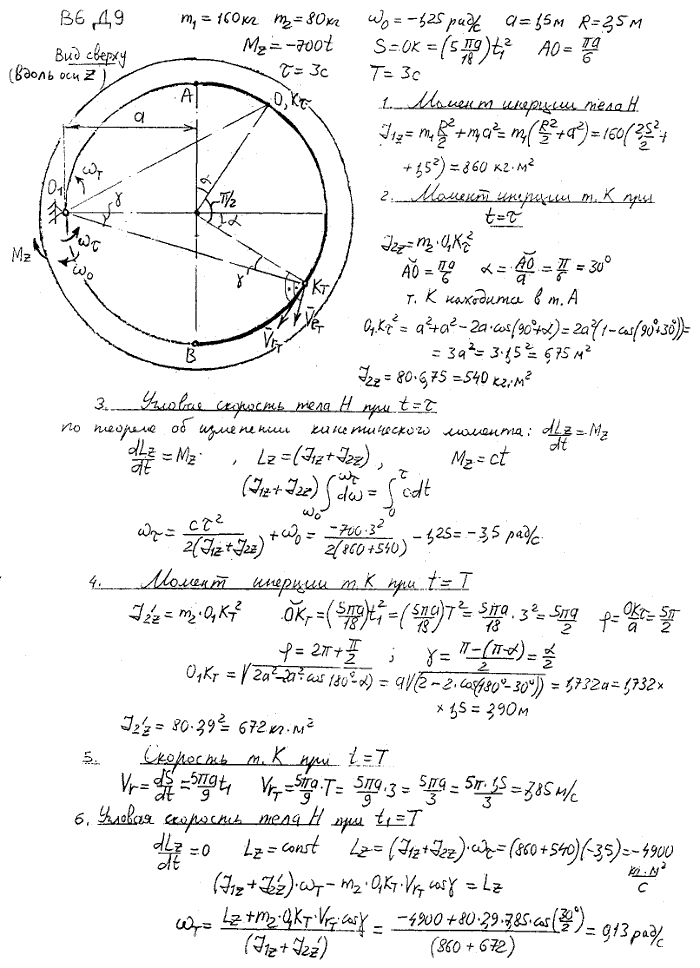 В6 Д9 m₁ = 160 кг m₂ = 80 кг ω₀ = -1,25 рад/с a = 1,5 м R = 2,5 м
M_z = -700t S = OK = (5πa/18)t₁² AO = πa/6
τ = 3c T = 3c
Вид сверху
(вдоль оси Z)
A
O, Kτ
a
α
π/2
α
O₁
ω_T
γ
ωτ
ω₀
M_z
γ
K_T
V̄r_T
V̄e_T
B
1. Момент инерции тела H
J₁z = m₁R²/2 + m₁a² = m₁(R²/2 + a²) = 160(2,5²/2 +
+ 1,5²) = 860 кг·м²
2. Момент инерции т. K при
t = τ
J₂z = m₂·O₁Kτ²
AO = πa/6 α = AO/a = π/6 = 30°
т. K находится в т. A
O₁Kτ² = a² + a² - 2a·cos(90°+α) = 2a²(1 - cos(90°+30°)) =
= 3a² = 3·1,5² = 6,75 м²
J₂z = 80·6,75 = 540 кг·м²
3. Угловая скорость тела H при t = τ
по теореме об изменении кинетического момента: dLz/dt = Mz
dLz/dt = Mz , Lz = (J₁z + J₂z) , Mz = ct
(J₁z + J₂z) ∫_ω₀^ωτ dω = ∫_0^τ ctdt
ωτ = cτ²/2(J₁z + J₂z) + ω₀ = -700·3²/2(860+540) - 1,25 = -3,5 рад/с
4. Момент инерции т. K при t = T
J₂z' = m₂·O₁K_T² OK_T = (5πa/18)t₁² = (5πa/18)T² = 5πa/18·3² = 5πa/2 φ = OKτ/a = 5π/2
φ = 2π + π/2 ; γ = π-(π-α)/2 = α/2
O₁K_T = √(2a² - 2a²·cos 180° - α) = a√(2 - 2·cos(180° - 30°)) = 1,732a = 1,732×
× 1,5 = 2,90 м
J₂z' = 80·2,9² = 672 кг·м²
5. Скорость т. K при t = T
Vr = dS/dt = 5πa/9 t₁ Vr_T = 5πa/9·T = 5πa/9·3 = 5πa/3 = 5π·1,5/3 = 7,85 м/с
6. Угловая скорость тела H при t₁ = T
dLz/dt = 0 Lz = const Lz = (J₁z + J₂z)·ωτ = (860 + 540)(-3,5) = -4900 кг·м²/с
(J₁z + J₂z')·ω_T - m₂·O₁K_T·Vr_T cosγ = Lz
ω_T = Lz + m₂·O₁K_T·Vr_T·cosγ/(J₁z + J₂z') = -4900 + 80·2,9·7,85·cos(30°/2)/(860 + 672) = 0,13 рад/с